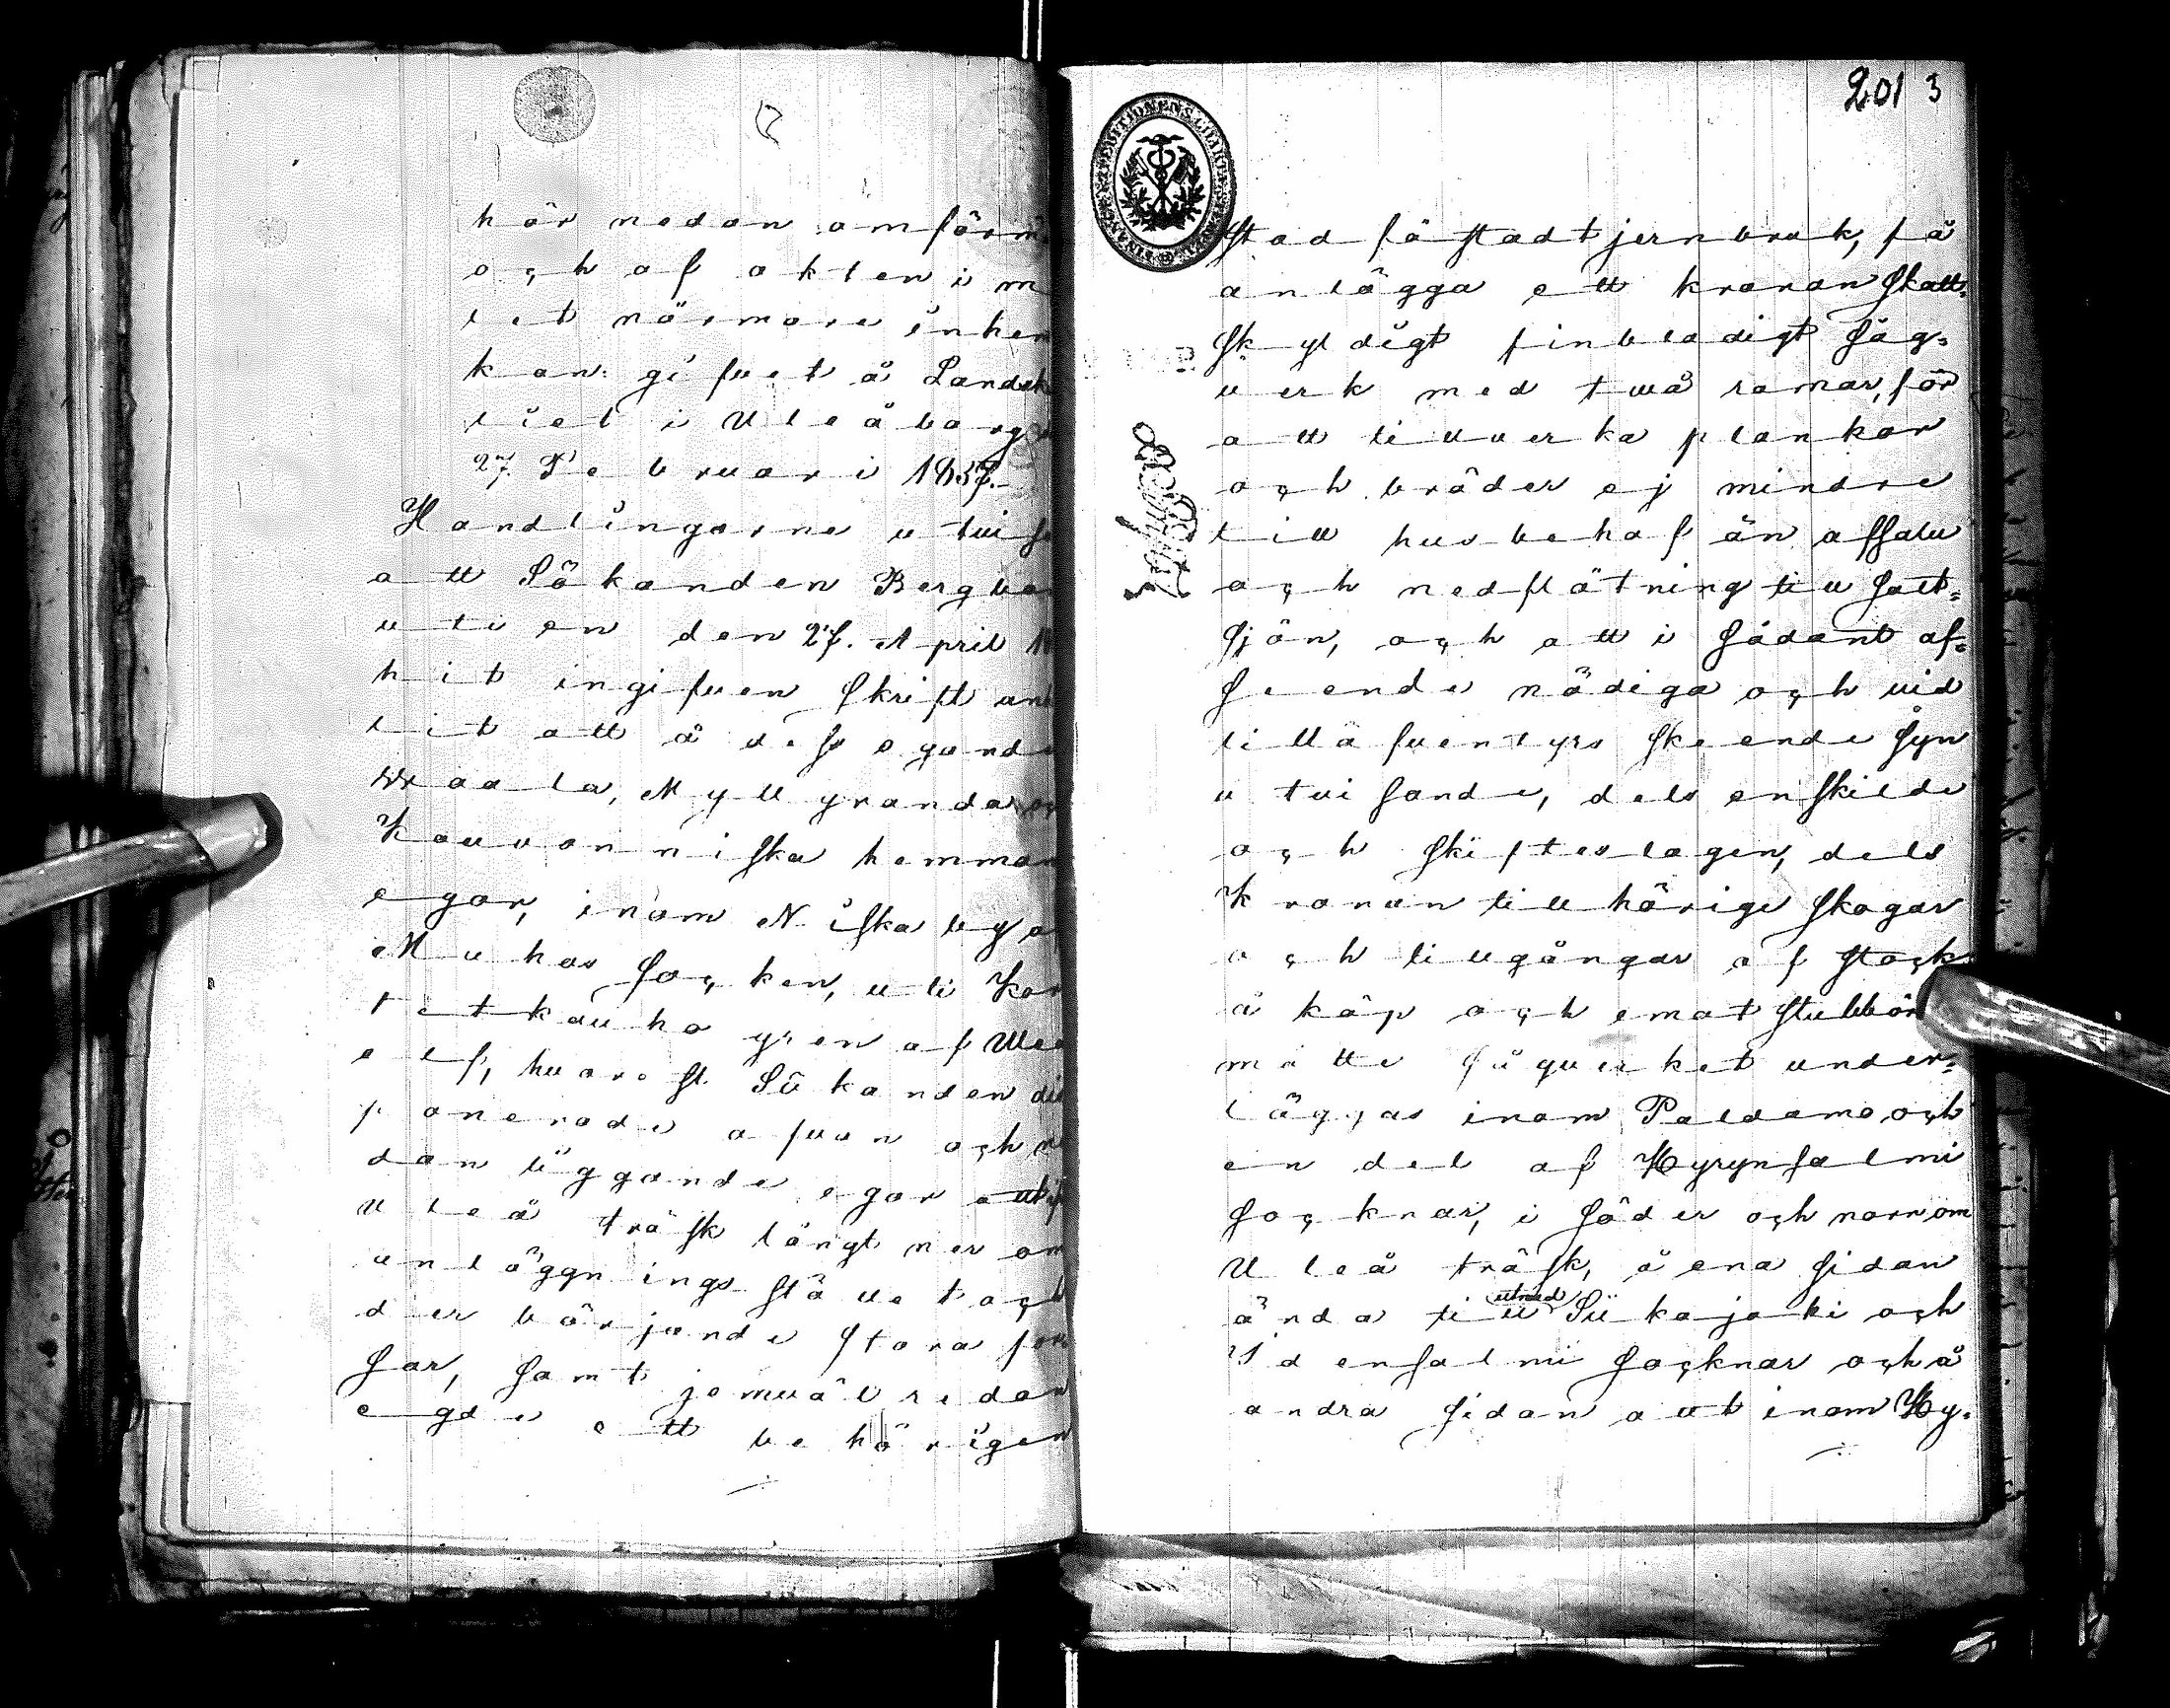 här nedan omförm
och af akten i m
let närmare inhem
kan: gifvet å Landsk
liet i Uleåborg
27. Februari 1857.
Handlingarne utvisa
att Sökanden Bergbo
uti en den 27. April 18
hit ingifven skrift anh
lit att å dess egande
Waala, Myllyranda och
Kouvonniska hemman
egor, inom Niska by a
Muhos socken, uti
elf, hvarest Sökanden dis
ponerade afven och
dan liggande egor
Uleå träsk längt ner om
anläggningsstället och
der börjande stora for
sar, samt jemväl redan
egde ett behörigen
201 3
stadfästadt jernbruk, få
anlägga ett kronan skatt=
skyldigt finbladigt såg=
verk med två ramar, för
att tillverka plankor
och bräder ej mindre
till husbehof än afsalu
och nedflötning till salt=
sjön, och att i sådant af=
seende nödiga och vid
tilläfventyrs skeende syn
utvisande, dels enskilde
och skifteslagen, dels
Kronan tillhörige skogar
och tillgångar af stock
å köp och emot stubbör
måtte sågverket under=
läggas inom Paldamo och
en del af Hyrynsalmi
socknar, i söder och norr om
Uleå träsk, å ena sidan
ända till utmed Siikajoki och
Idensalmi socknar och å
andra sidan allt inom Hy=